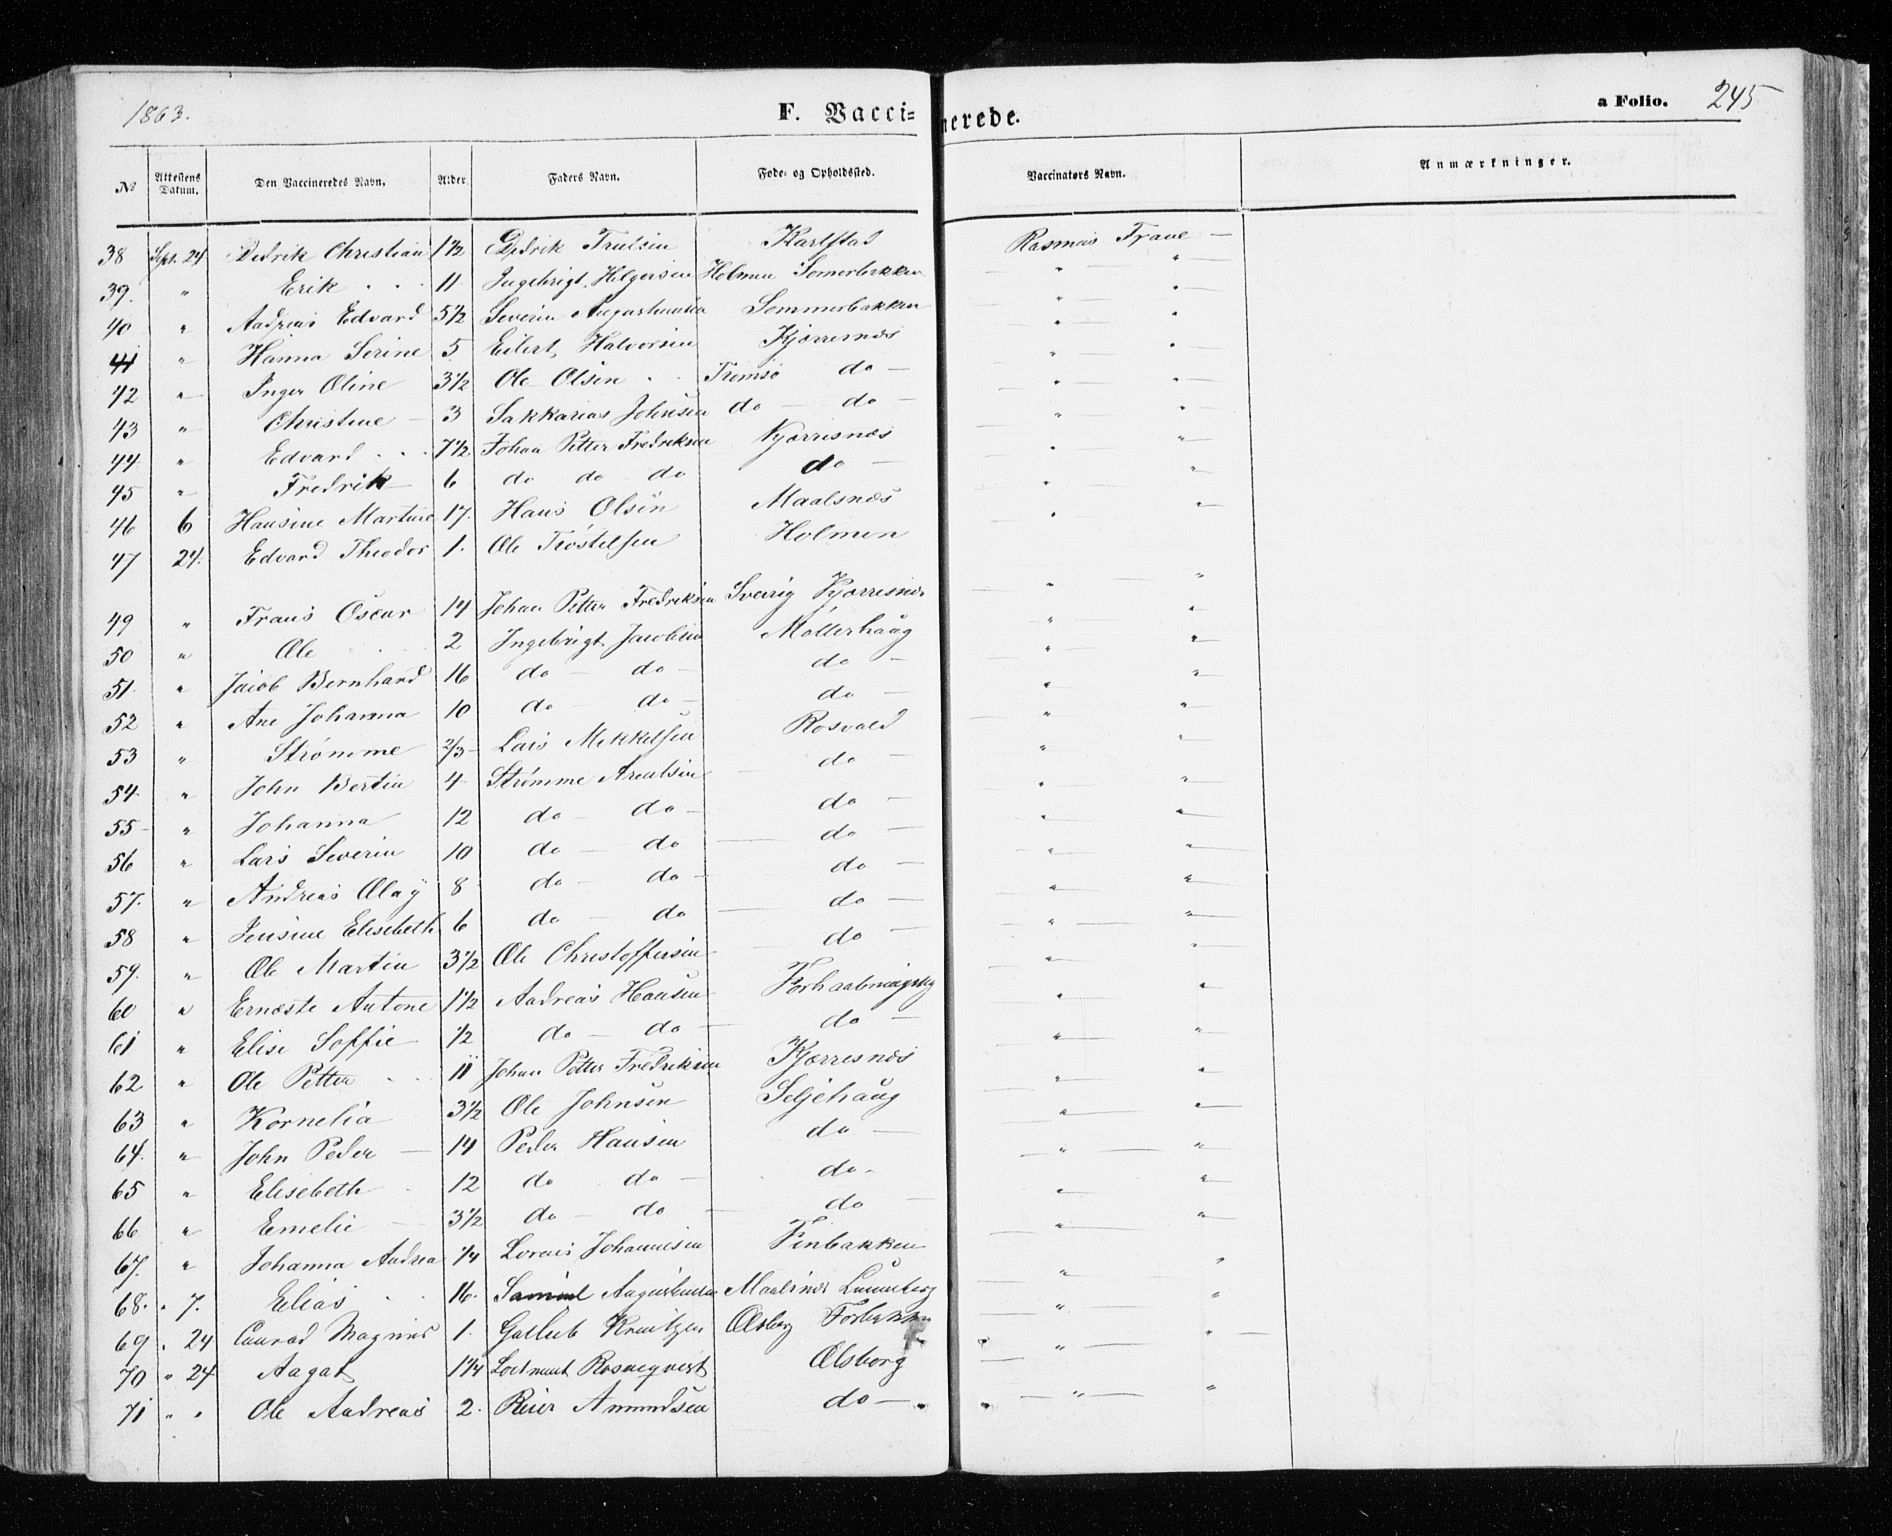 1863. F. Vaccinerede. a Folio. 245
№ Attestens Datum. Den Vaccineredes Navn. Alder. Faders Navn. Føde- og Opholdssted. Vaccinators Navn. Anmærkninger.
38 Sept. 24 Didrik Christian 1½ Didrik Trulsen Karlstad Rasmus Trane —
39. " Erik 11 Ingebrigt Holmen Somerbakken " — "
40 " Andreas Edvard 5½ Severin Augustinusen Sommerbakken " — "
41 " Hanna Serine 5 Eilert Halvorsen Kjærresnæs " — "
42 " Inger Oline 3½ Ole Olsen Tromsø do — " — "
43 " Christine — 3 Sakkarias Johnsen do — do — " — "
44 " Edvard 7½ Johan Petter Fredriksen Kjærresnæs " — "
45 " Fredrik 6 do do do do — " — "
46 6 Hansine Martine 17. Hans Olsen Maalsnæs " — "
47 24. Edvard Theodor 1. Ole Trøstelsen Holmen " — "
49 " Frans Oscar 14 Johan Petter Fredriksen Sverig Kjærresnæs " — "
50 " Ole 2 Ingebrigt Jacobsen Møllerhaug " — "
51. " Jacob Bernhard 16 do — do — do — " — "
52 " Ane Johanna 10 do — do — do — " — "
53 " Strømme 2/3 — Lars Mikkelsen Rosvald " — "
54. " John Bertin 4 Strømme Arentsen — do — " — "
55 — " Johanna 12 do — do — do — " — "
56 " Lars Severin 10 do — do — do — " — "
57. " Andreas Olaÿ 8 do — do — do — " — "
58 " Jensine Elisebeth 6 do — do — do — " — "
59. " Ole Martin 3½ Ole Christoffersen — do — " — "
60 " Ernæste Antone 1½ Andreas Hansen " — "
61 " Elise Soffie — ½ do — do — do — " — "
62 " Ole Petter 11 Johan Petter Fredriksen Kjærresnæs " — "
63 " Kornelia 3½ Ole Johnsen Seljehaug " — "
64. " John Peder — 14 Peder Hansen do — " — "
65 " Elisebeth 12 do do — do — " — "
66 " Emelie — 3½ do — do — do — " — "
67. " Johanna Andrea ¼ Johannesen Finbakken " — "
68. " 7. Elias 16. Samuel Augustinusen Maalsnæs " — "
69 " 24 Conrad Magnus 1. Gotlieb Kreutzer Olsborg " — "
70 " 24 Aagat 1¼ Rosneqvist Olsborg " — "
71 " " Ole Andreas 2. Reier Amundsen do — " — "